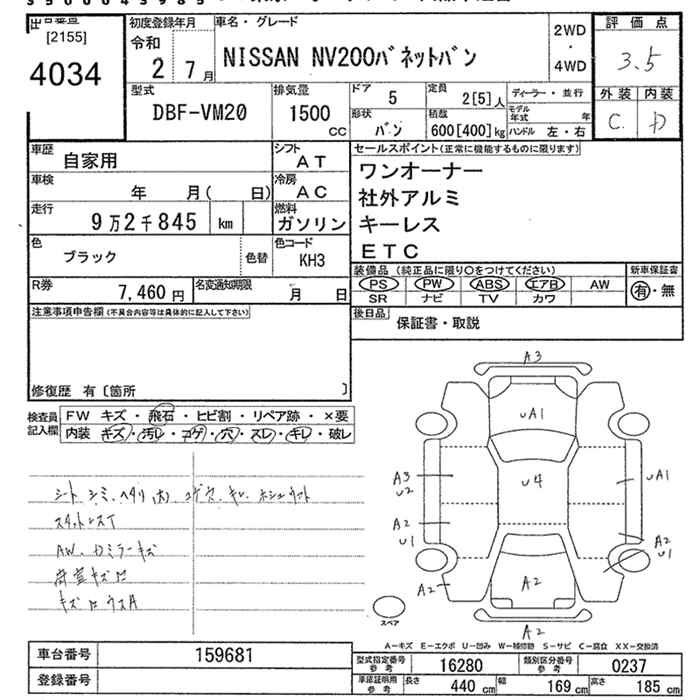 [2155]
4034
初度登録年月
令和
2 7月
車名・グレード
NISSAN NV200バネットバン
2WD
・
4WD
評価点
3.5
外装 内装
C. D
型式
DBF-VM20
排気量
1500
CC
ドア
5
形状
バン
定員
2[5]人
積載
600[400]kg
ディーラー・並行
モデル年式 年
ハンドル 左・右
車歴 自家用
シフト
AT
車検 年 月( 日)
冷房
AC
走行 9万2千845 km
燃料
ガソリン
色
ブラック
色替
色コード
KH3
R券 7,460円
名変通知期限
月 日
セールスポイント(正常に機能するものに限ります)
ワンオーナー
社外アルミ
キーレス
ETC
装備品 (純正品に限り○をつけてください)
PS PW ABS エアB AW
SR ナビ TV カワ
新車保証書
有・無
後日品
保証書・取説
注意事項申告欄(不具合内容等は具体的に記入して下さい)
修復歴 有〔箇所 〕
検査員記入欄
FW キズ・飛石・ヒビ割・リペア跡・×要
内装 キズ・汚レ・コゲ・穴・スレ・キレ・破レ
AW、カミラーキズ
A3
UA1
U4
A3
U2
A2
U1
A2
UA1
A2
U1
A2
A2
スペア
A-キズ E-エクボ U-凹み W-補修跡 S-サビ C-腐食 XX-交換済
車台番号 159681
登録番号
型式指定番号
参考
16280
類別区分番号
参考
0237
車庫証明用
参考
長さ 440cm 幅 169cm 高さ 185cm